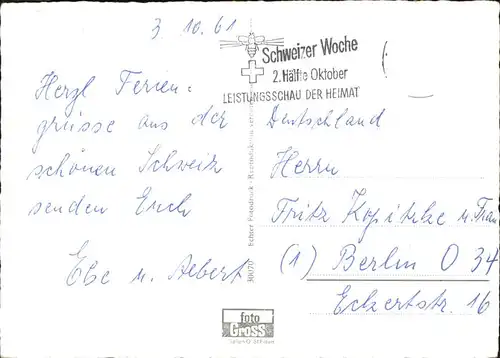 3. 10. 61
Schweizer Woche
2. Hälfte Oktober
LEISTUNGSSCHAU DER HEIMAT
Herzl Ferien=
grüsse aus der
schönen Schweiz
senden Euch
Ebe u. Aebert
Deutschland
Herrn
Fritz Kopitzke u. Frau
(1) Berlin O 34
Eckertstr. 16
30070
Echter Fotodruck
foto
Gross